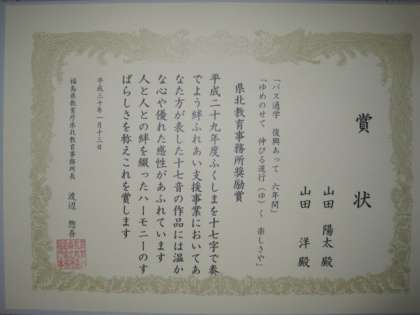 賞状
山田 陽太 殿
山田 洋 殿
「バス通学 復興あって 六年間」
「ゆめのせて 伸びる運行（ゆ）く 楽しさや」
県北教育事務所奨励賞
平成二十九年度ふくしまを十七字で奏
でよう絆ふれあい支援事業においてあ
なた方が表した十七音の作品には温か
な心や優れた感性があふれています
人と人との絆を綴ったハーモニーのす
ばらしさを称えこれを賞します
平成三十年一月十三日
福島県教育庁県北教育事務所長
渡辺 惣吾